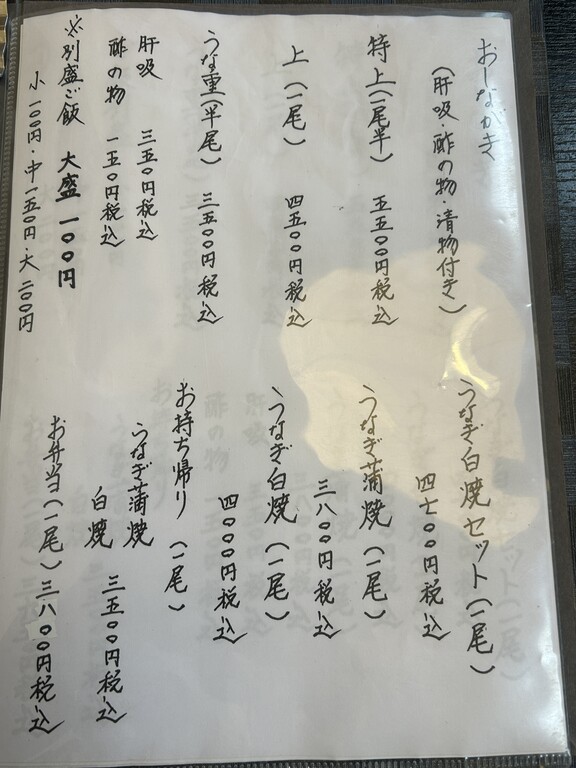 おしながき
(肝吸・酢の物・漬物付き)
特上(一尾半) 五五〇〇円税込
上(一尾) 四五〇〇円税込
うな重(半尾) 三五〇〇円税込
肝吸 三五〇円税込
酢の物 一五〇円税込
※別盛ご飯 大盛一〇〇円
小一〇〇円・中一五〇円・大二〇〇円
うなぎ白焼セット(一尾)
四七〇〇円税込
うなぎ蒲焼(一尾)
三八〇〇円税込
うなぎ白焼(一尾)
四〇〇〇円税込
お持ち帰り(一尾)
うなぎ蒲焼
白焼 三五〇〇円税込
お弁当(一尾)三八〇〇円税込